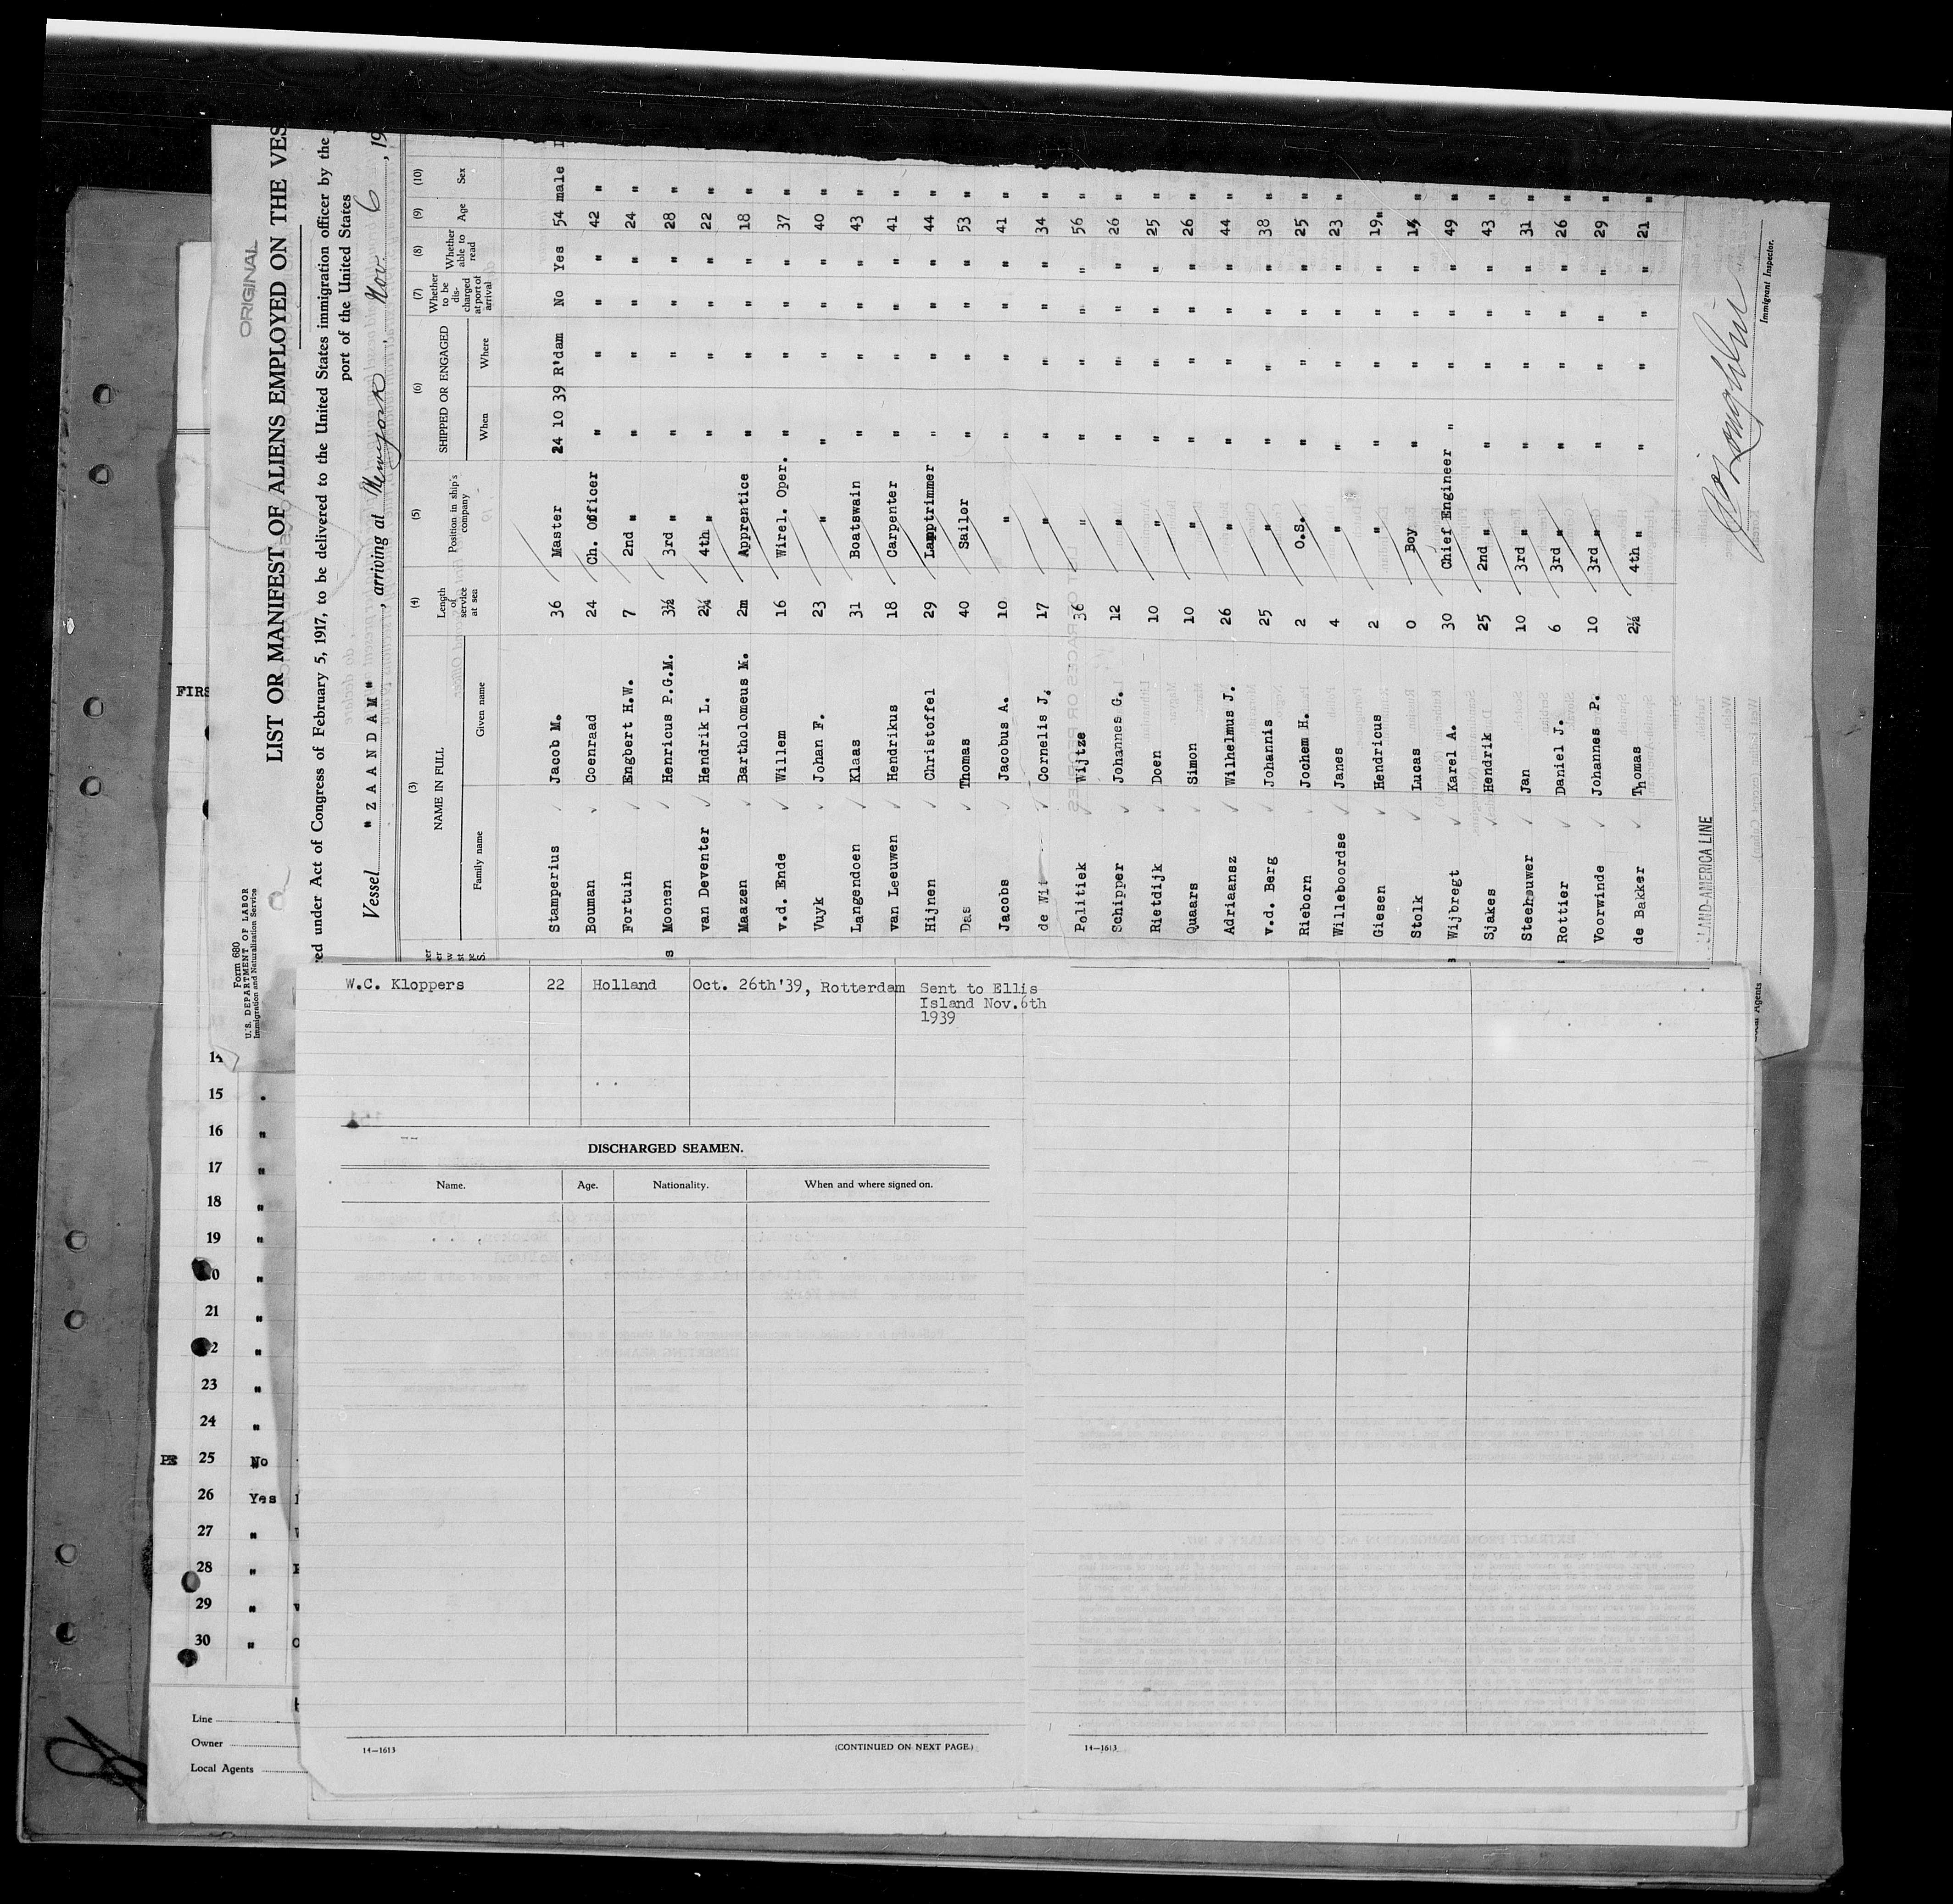 ORIGINAL
Form 680
U.S. DEPARTMENT OF LABOR
Immigration and Naturalization Service
LIST OR MANIFEST OF ALIENS EMPLOYED ON THE VES
red under Act of Congress of February 5, 1917, to be delivered to the United States immigration officer by the
port of the United States
Vessel "ZAANDAM", arriving at Newyork, Nov. 6, 19
(3) (4) (5) (6) (7) (8) (9) (10)
NAME IN FULL Length of service at sea Position in ship's company SHIPPED OR ENGAGED Whether to be discharged at port of arrival Whether able to read Age Sex
Family name Given name When Where
Stamperius Jacob M. 36 Master 24 10 39 R'dam No Yes 54 male
Bouman Coenraad 24 Ch. Officer " " " " 42 "
Fortuin Engbert H.W. 7 2nd " " " " " 24 "
Moonen Henricus P.G.M. 3½ 3rd " " " " " 28 "
van Deventer Hendrik L. 2¼ 4th " " " " " 22 "
Maazen Bartholomeus M. 2m Apprentice " " " " 18 "
v.d. Ende Willem 16 Wirel. Oper. " " " " 37 "
Vuyk Johan F. 23 " " " " " 40 "
Langendoen Klaas 31 Boatswain " " " " 43 "
van Leeuwen Hendrikus 18 Carpenter " " " " 41 "
Hijnen Christoffel 29 Lamptrimmer " " " " 44 "
Das Thomas 40 Sailor " " " " 53 "
Jacobs Jacobus A. 10 " " " " " 41 "
de Wit Cornelis J. 17 " " " " " 34 "
Politiek Wijtze 36 " " " " " 56 "
Schipper Johannes G. 12 " " " " " 26 "
Rietdijk Doen 10 " " " " " 25 "
Quaars Simon 10 " " " " " 26 "
Adriaansz Wilhelmus J. 26 " " " " " 44 "
v.d. Berg Johannis 25 " " " " " 38 "
Rieborn Jochem H. 2 O.S. " " " " 25 "
Willeboordse Janes 4 " " " " " 23 "
Giesen Hendricus 2 " " " " " 19 "
Stolk Lucas 0 Boy " " " " "
Wijbregt Karel A. 30 Chief Engineer " " " " 49 "
Sjakes Hendrik 25 2nd " " " " " 43 "
Steehouwer Jan 10 3rd " " " " " 31 "
Rottier Daniel J. 6 3rd " " " " " 26 "
Voorwinde Johannes P. 10 3rd " " " " " 29 "
de Bakker Thomas 2½ 4th " " " " " 21 "
LLAND-AMERICA LINE
Immigrant Inspector.
W.C. Kloppers 22 Holland Oct. 26th'39, Rotterdam Sent to Ellis
Island Nov.6th
1939
DISCHARGED SEAMEN.
Name. Age. Nationality. When and where signed on.
14—1613 (CONTINUED ON NEXT PAGE.)
14—1613
FIRS
14
15
16 "
17 "
18 "
19 "
20 "
21 "
22 "
23 "
24 "
25 No
26 Yes
27 "
28 "
29 "
30 "
Line
Owner
Local Agents